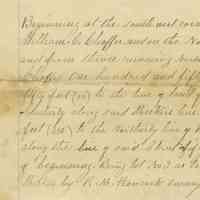 Beginning at the southwest corner
William C. Chaffee and on the No
and from thence running
Chaffee one hundred and fif
fifty feet (150) to the line of land
along said Streeters line
feet (50) to the Northerly line of
along the line of said Street fif
of beginning. Being lot No. 3 as
by R. M. Hancock